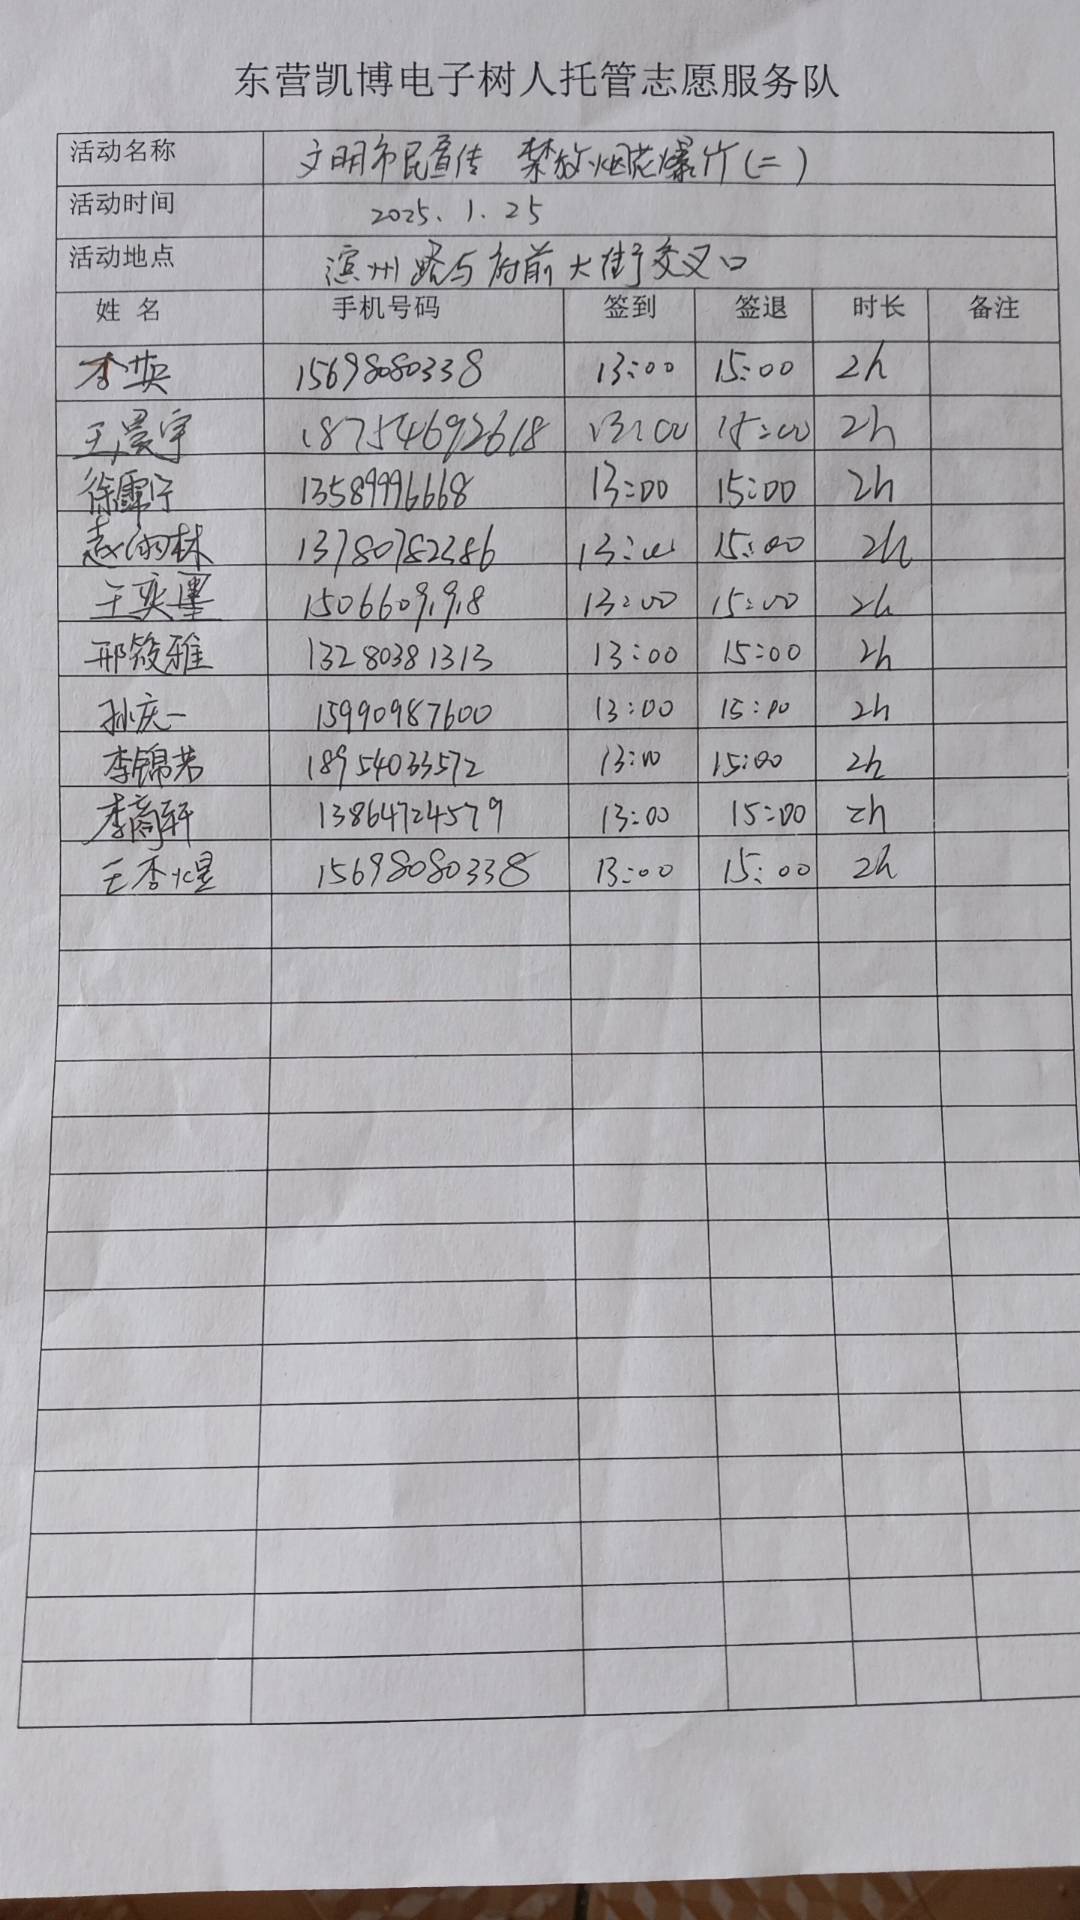 东营凯博电子树人托管志愿服务队
活动名称 文明市民宣传 禁放烟花爆竹(二)
活动时间 2025.1.25
活动地点 滨州路与府前大街交叉口
姓名 手机号码 签到 签退 时长 备注
李英 15698080338 13:00 15:00 2h
王晨宇 18754692618 13:00 15:00 2h
徐霈宁 13589996668 13:00 15:00 2h
13780782386 13:00 15:00 2h
王奕墨 15066091918 13:00 15:00 2h
邢筱雅 13280381313 13:00 15:00 2h
孙庆一 15990987600 13:00 15:00 2h
李锦芳 18954033572 13:00 15:00 2h
李商轩 13864724579 13:00 15:00 2h
王李煜 15698080338 13:00 15:00 2h